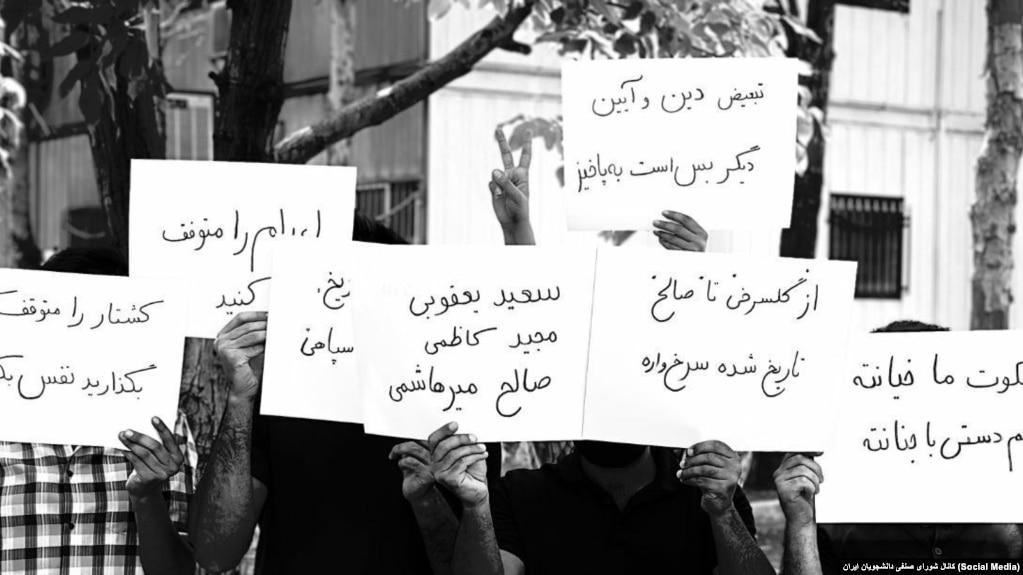 تبعیض دین و آیین
دیگر بس است به‌پاخیز
اعدام را متوقف
کنید
کشتار را متوقف
بگذارید نفس
سپاهی
سعید یعقوبی
مجید کاظمی
صالح میرهاشمی
از گلسرخی تا صالح
تاریخ شده سرخ‌واره
ما خیانته
دستی با جنانته
کانال شورای صنفی دانشجویان ایران (Social Media)